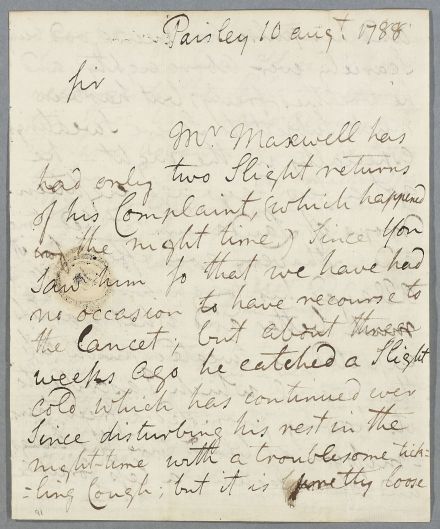 Paisley 10 augt. 1788
Sir
Mr Maxwell has
had only two Slight returns
of his Complaint, (which happened
in the night time) Since You
Saw him So that we have had
no occasion to have recourse to
the Lancet; but about three
weeks ago he catched a Slight
Cold which has continued ever
Since disturbing his rest in the
night-time with a troublesome tick=
=ling Cough; but it is pretty loose